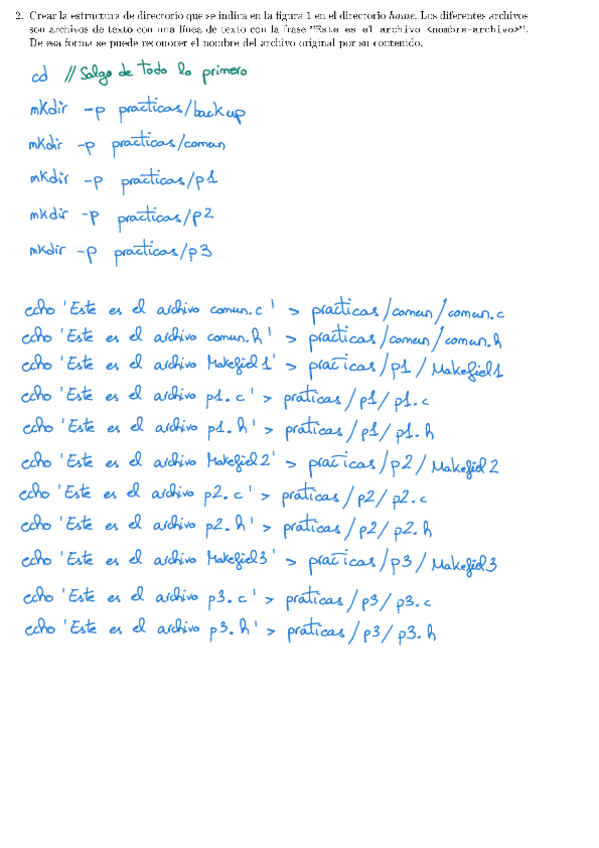 2. Crear la estructura de directorio que se indica en la figura 1 en el directorio home. Los diferentes archivos
son archivos de texto con una línea de texto con la frase "Este es el archivo <nombre-archivo>".
De esa forma se puede reconocer el nombre del archivo original por su contenido.
cd //Salgo de Todo lo primero
mKdir -p practicas/backup
mKdir -p practicas/comun
mKdir -p practicas/p1
mkdir -p practicas/p2
mkdir -p practicas/p3
echo 'Este es el archivo comun.c' > practicas/comun/comun.c
echo 'Este es el archivo comun.h' > practicas/comun/comun.h
echo 'Este es el archivo Makefiel1' > pracicas/p1/Makefiel1
echo 'Este es el archivo p1.c' > práticas/p1/p1.c
echo 'Este es el archivo p1.h' > práticas/p1/p1.h
echo 'Este es el archivo Makefiel2' > pracicas/p2/Makefiel2
echo 'Este es el archivo p2.c' > práticas/p2/p2.c
echo 'Este es el archivo p2.h' > práticas/p2/p2.h
echo 'Este es el archivo Makefiel3' > pracicas/p3/Makefiel3
echo 'Este es el archivo p3.c' > práticas/p3/p3.c
echo 'Este es el archivo p3.h' > práticas/p3/p3.h